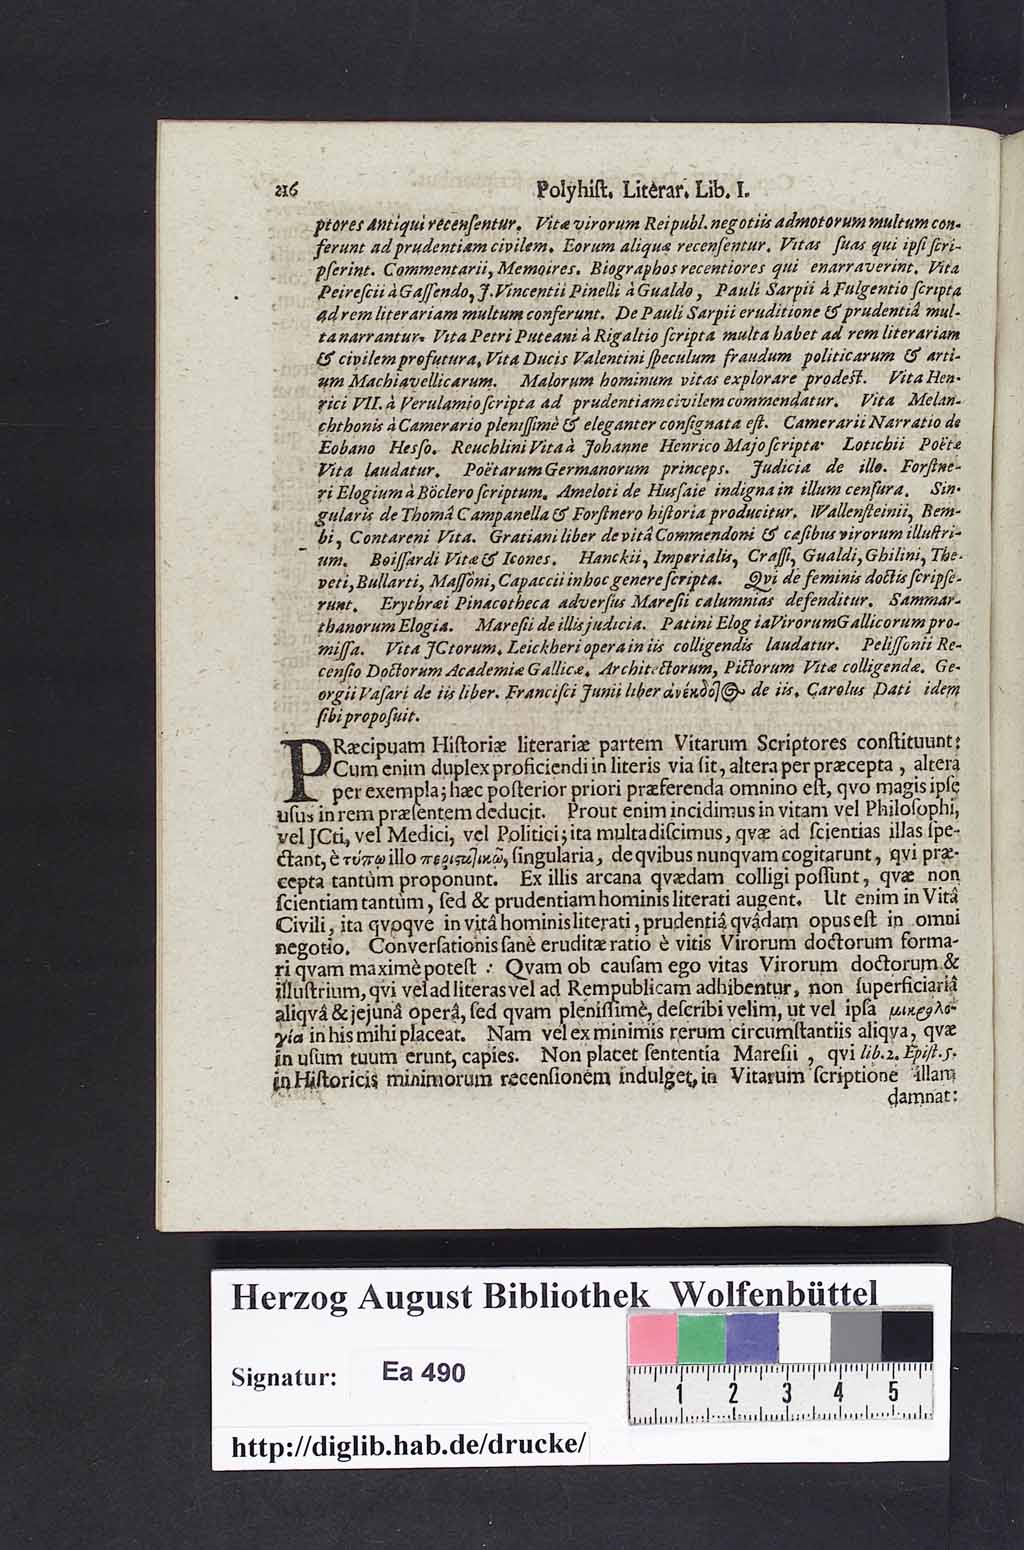 216 Polyhiſt. Literar. Lib. I.
ptores Antiqui recenſentur. Vitæ virorum Reipubl. negotiis admotorum multum con-
ferunt ad prudentiam civilem. Eorum aliquæ recenſentur. Vitas ſuas qui ipſi ſcri-
pſerint. Commentarii, Memoires. Biographos recentiores qui enarraverint. Vita
Peireſcii à Gaſſendo, J. Vincentii Pinelli à Gualdo, Pauli Sarpii à Fulgentio ſcripta
ad rem literariam multum conferunt. De Pauli Sarpii eruditione & prudentiâ mul-
ta narrantur. Vita Petri Puteani à Rigaltio ſcripta multa habet ad rem literariam
& civilem profutura, Vita Ducis Valentini ſpeculum fraudum politicarum & arti-
um Machiavellicarum. Malorum hominum vitas explorare prodeſt. Vita Hen-
rici VII. à Verulamio ſcripta ad prudentiam civilem commendatur. Vita Melan-
chthonis à Camerario pleniſſimè & eleganter conſignata eſt. Camerarii Narratio de
Eobano Heſſo. Reuchlini Vita à Johanne Henrico Majo ſcripta. Lotichii Poëtæ
Vita laudatur. Poëtarum Germanorum princeps. Judicia de illo. Forſtne-
ri Elogium à Böclero ſcriptum. Ameloti de Huſſaie indigna in illum cenſura. Sin-
gularis de Thomâ Campanella & Forſtnero hiſtoria producitur. Wallenſteinii, Bem-
bi, Contareni Vita. Gratiani liber de vitâ Commendoni & caſibus virorum illuſtri-
um. Boiſſardi Vitæ & Icones. Hanckii, Imperialis, Craſſi, Gualdi, Ghilini, The-
veti, Bullarti, Maſſoni, Capaccii in hoc genere ſcripta. Qvi de feminis doctis ſcripſe-
runt. Erythræi Pinacotheca adverſus Mareſii calumnias defenditur. Sammar-
thanorum Elogia. Mareſii de illis judicia. Patini Elogia Virorum Gallicorum pro-
miſſa. Vita JCtorum. Leickheri opera in iis colligendis laudatur. Peliſſonii Re-
cenſio Doctorum Academiæ Gallicæ. Architectorum, Pictorum Vitæ colligendæ. Ge-
orgii Vaſari de iis liber. Franciſci Junii liber ἀνέκδοτος de iis. Carolus Dati idem
ſibi propoſuit.
PRæcipuam Hiſtoriæ literariæ partem Vitarum Scriptores conſtituunt:
Cum enim duplex proficiendi in literis via ſit, altera per præcepta, altera
per exempla; hæc poſterior priori præferenda omnino eſt, qvo magis ipſe
uſus in rem præſentem deducit. Prout enim incidimus in vitam vel Philoſophi,
vel JCti, vel Medici, vel Politici; ita multa diſcimus, qvæ ad ſcientias illas ſpe-
ctant, è τύπῳ illo περιστατικῷ, ſingularia, de qvibus nunqvam cogitarunt, qvi præ-
cepta tantùm proponunt. Ex illis arcana qvædam colligi poſſunt, qvæ non
ſcientiam tantùm, ſed & prudentiam hominis literati augent. Ut enim in Vitâ
Civili, ita qvoqve in vitâ hominis literati, prudentiâ qvâdam opus eſt in omni
negotio. Converſationis ſanè eruditæ ratio è vitis Virorum doctorum forma-
ri qvam maximè poteſt: Qvam ob cauſam ego vitas Virorum doctorum &
illuſtrium, qvi vel ad literas vel ad Rempublicam adhibentur, non ſuperficiariâ
aliqvâ & jejunâ operâ, ſed qvam pleniſſimè, deſcribi velim, ut vel ipſa μικρολο-
γία in his mihi placeat. Nam vel ex minimis rerum circumſtantiis aliqva, qvæ
in uſum tuum erunt, capies. Non placet ſententia Mareſii, qvi lib. 2. Epiſt. 5.
in Hiſtoricis minimorum recenſionem indulget, in Vitarum ſcriptione illam
damnat:
Herzog August Bibliothek Wolfenbüttel
Signatur: Ea 490
1 2 3 4 5
http://diglib.hab.de/drucke/